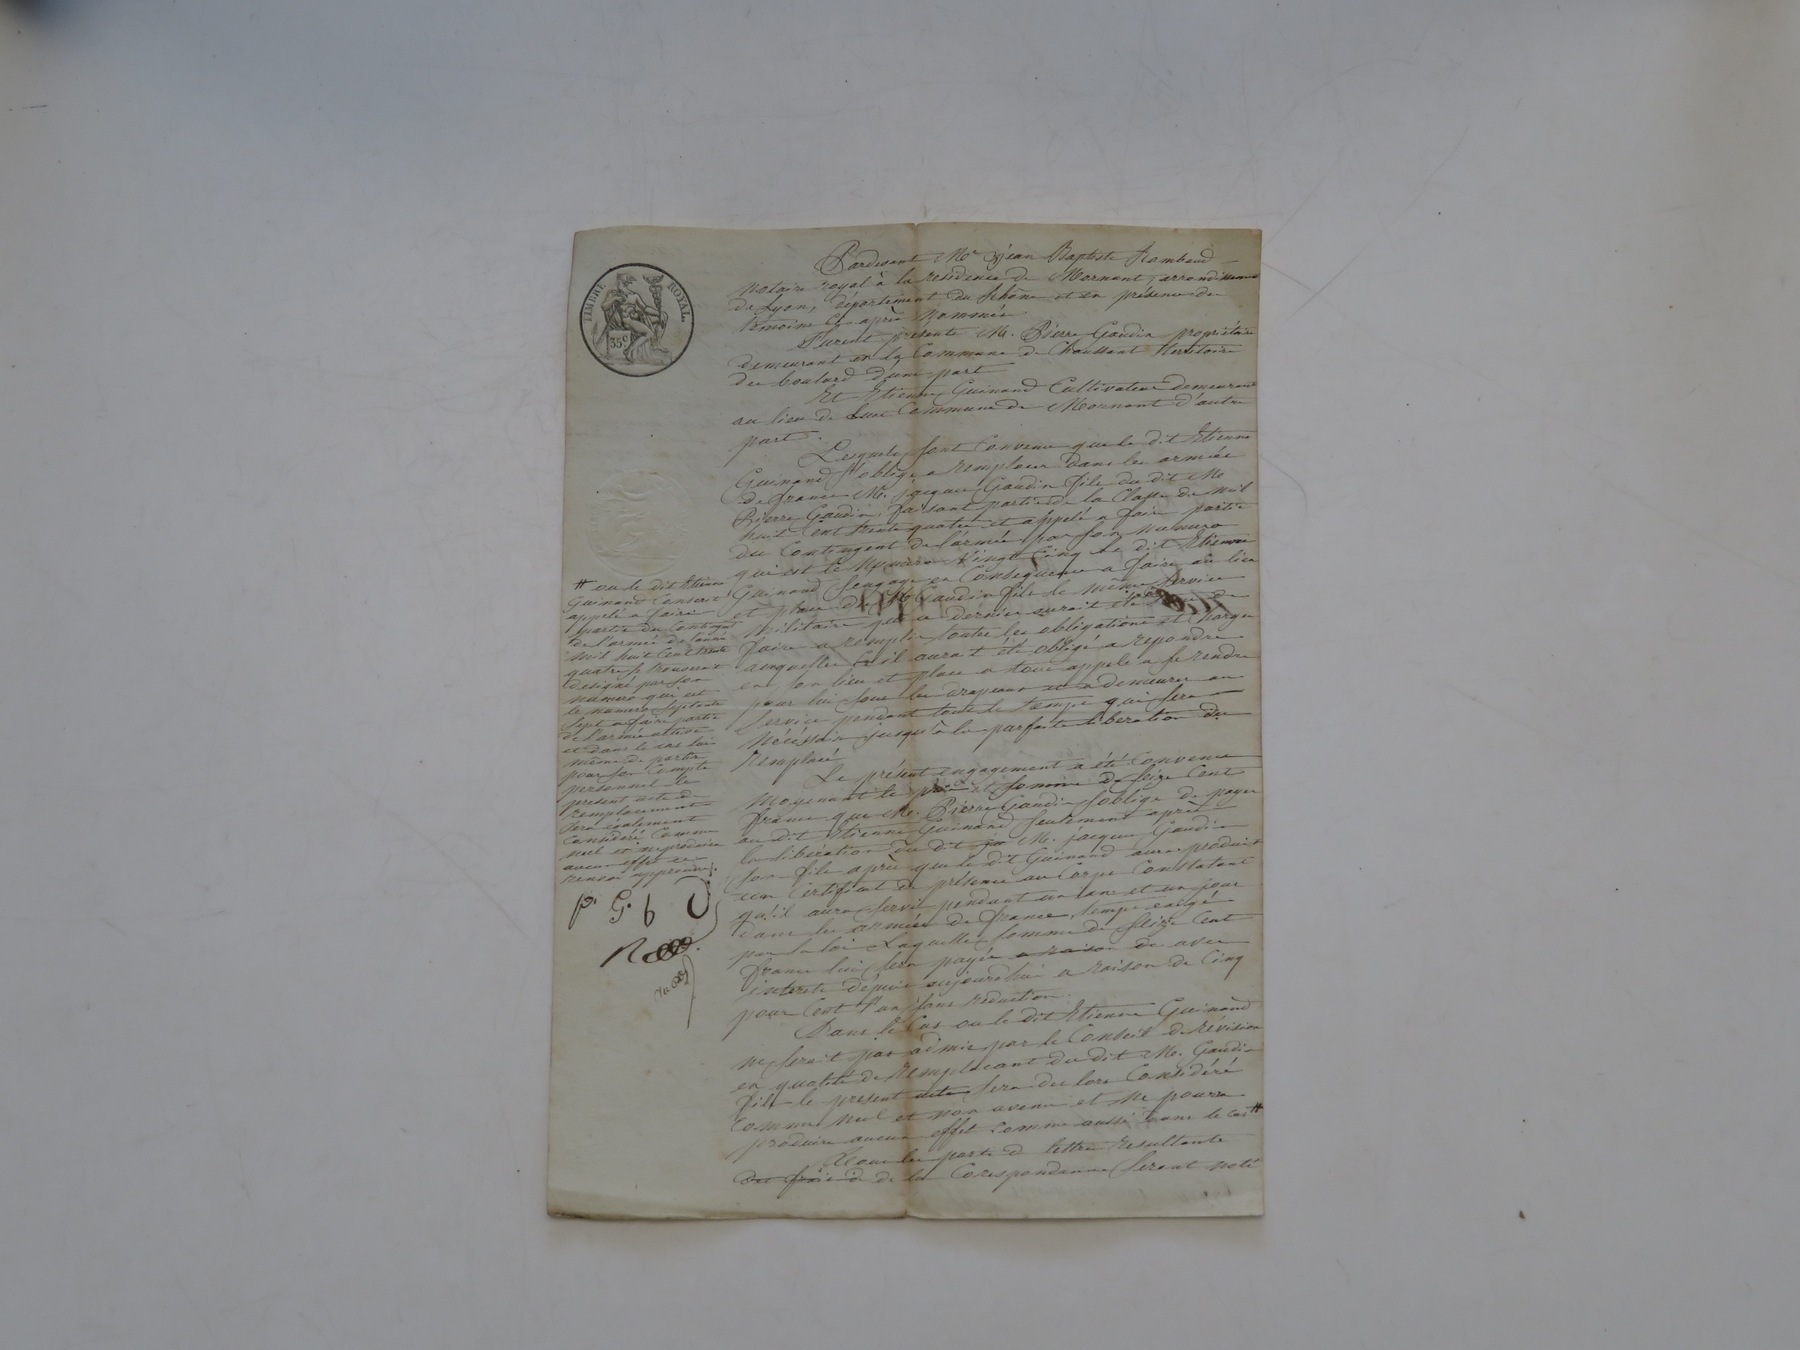 TIMBRE ROYAL.
35c
Pardevant Me jean Baptiste Rambaud
notaire royal à la residence de Mornant, arrondissement
de Lyon, département du Rhône et en présence de
témoins ci après nommés
Furent présents M. Pierre Gaudin propriétaire
demeurant en la Commune de Chaussant territoire
du boulard d'une part
Et Etienne Guinand Cultivateur demeurant
au lieu de Commune de Mornant d'autre
part.
Lesquels sont Convenu que le dit Etienne
Guinand s'oblige a remplacer dans les armées
de france M. jacque Gaudin fils du dit M.
Pierre Gaudin, faisant partie de la Classe de mil
huit Cent trente quatre et appelé a faire partie
du Contingent de l'armée par son numero
qui est le Numero Vingt Cinq le dit Etienne
Guinand s'engage en Consequence a faire au lieu
et place de M. Gaudin fils le même Service
Militaire que ce dernier aurait été de
faire a remplir toutes les obligations et Charges
auxquelles il aurait été obligé a repondre
en son lieu et place a tous appels a se rendre
pour lui sous les drapeaux et a demeurer au
Service pendant tout le temps qui sera
Nécéssaire jusqu'à la parfaite liberation du
Remplacé
Le présent engagement a été Convenu
Moyennant le prix et somme de Seize Cent
francs que M. Pierre Gaudin s'oblige de payer
au dit Etienne Guinand seulement après
la libération du dit M. jacque Gaudin
son fils après que le dit Guinand aura produit
un Certificat de présence au Corps Constatant
qu'il aura servi pendant un ans et un jour
dans les armées de france, temps exigé
par la loi Laquelle somme de Seize Cent
francs lui sera payée a raison de avec
interets depuis aujourdhui a raison de Cinq
pour Cent l'an sans reduction.
Dans le Cas ou le dit Etienne Guinand
ne serait pas admis par le Conseil de révision
en qualité de Remplacant du dit M. Gaudin
fils le present acte sera des lors Considéré
Comme nul et non avenu et ne pourra
produire aucun effet Comme aussi dans le cas #
Tous les ports de lettre Resultants
des frais de la Corespondance seront noté
# ou le dit Etienne
Guinand Conscrit
appelé a faire
partie du Contingent
de l'armée de l'année
mil huit Cent trente
quatre se trouverait
designé par son
numero qui est
le numero Septante
sept a faire partie
de l'armée active
et dans le cas lui
même de partir
pour son Compte
personnel le
present acte de
remplacement
sera également
Considéré Comme
nul et ne produira
aucun effet ce
renvoi approuvé.
p. G. b